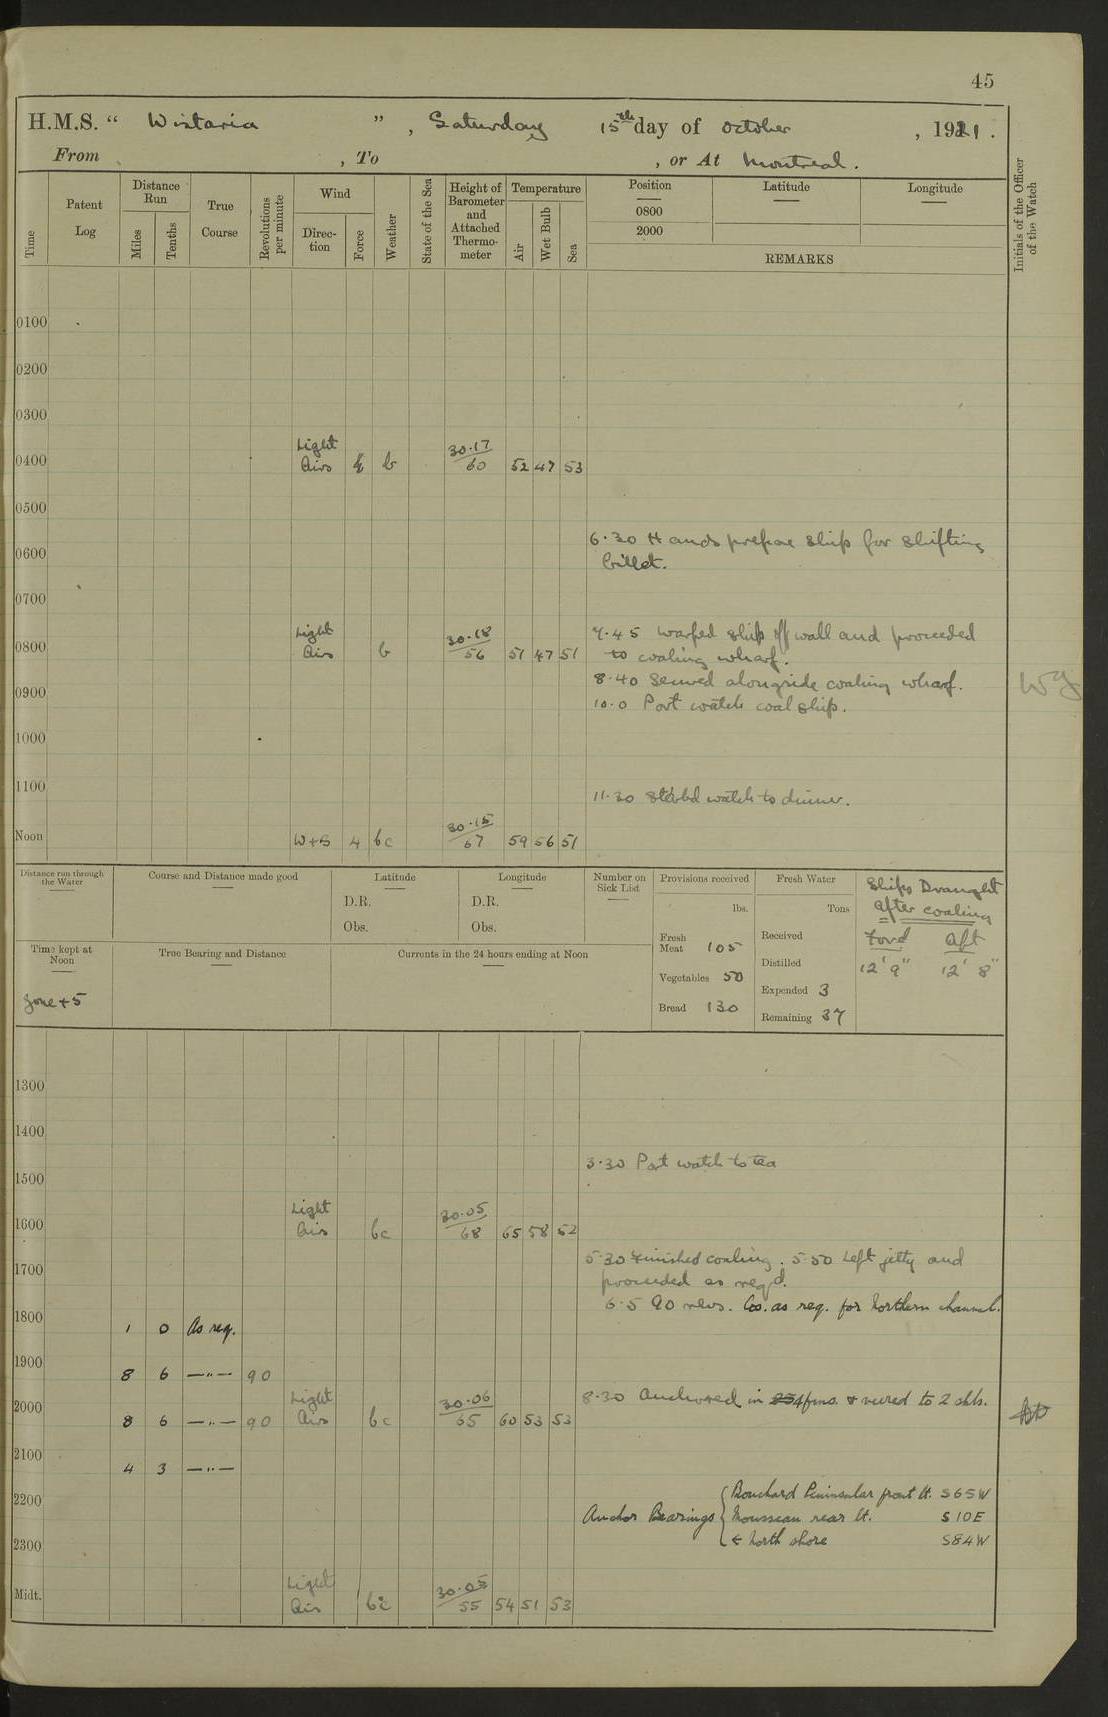 45
H.M.S. " Wistaria ", Saturday 15th day of October, 1921.
From , To , or At Montreal.
Time
Patent Log
Distance Run
Miles
Tenths
True Course
Revolutions per minute
Wind
Direc-tion
Force
Weather
State of the Sea
Height of Barometer and Attached Thermo-meter
Temperature
Air
Wet Bulb
Sea
Position
Latitude
Longitude
0800
2000
REMARKS
Initials of the Officer of the Watch
0100
0200
0300
0400 Light Airs b 30.17/60 52 47 53
0500
0600
6.30 Hands prepare ship for shifting
billet.
0700
0800 Light Airs b 30.18/56 51 47 51
7.45 Warped ship off wall and proceeded
to coaling wharf.
8.40 Secured alongside coaling wharf.
0900
10.0 Port watch coal ship.
1000
1100
11.30 Starbd watch to dinner.
Noon W+S 4 bc 30.15/67 59 56 51
Distance run through the Water
Course and Distance made good
Latitude
D.R.
Obs.
Longitude
D.R.
Obs.
Number on Sick List
Provisions received
lbs.
Fresh Meat 105
Vegetables 50
Bread 130
Fresh Water
Tons
Received
Distilled
Expended 3
Remaining 37
Ships Draught
after coaling
Ford Aft
12' 9" 12' 8"
Time kept at Noon
Zone +5
True Bearing and Distance
Currents in the 24 hours ending at Noon
1300
1400
3.30 Port watch to tea
1500
1600 Light Airs bc 30.05/68 65 58 52
5.30 Finished coaling. 5.50 Left jetty and
1700
proceeded as req'd.
6.5 90 revs. Co. as req. for Northern channel.
1800 1 0 As req.
1900 8 6 —"— 90
2000 8 6 —"— 90 Light Airs bc 30.06/65 60 53 53
8.30 Anchored in 4 fms. & veered to 2 shls.
2100 4 3 —"—
2200
Anchor Bearings { Bouchard Peninsular front lt. S65W
Mousseau rear lt. S10E
North shore S84W
2300
Midt. Light Airs bc 30.05/55 54 51 53